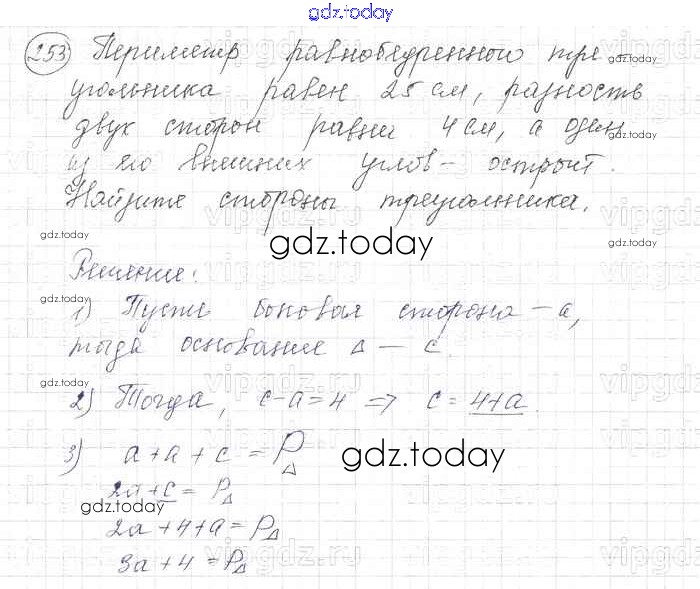 gdz.today
253 Периметр равнобедренного тре-
gdz.today
угольника равен 25 см, разность
двух сторон равна 4 см, а один
gdz.today
из его внешних углов - острый.
Найдите стороны треугольника.
gdz.today
gdz.today
Решение:
1) Пусть боковая сторона - a,
gdz.today
gdz.today
тогда основание Δ - c.
gdz.today
2) Тогда, c-a=4 => c = 4+a.
gdz.today
3) a+a+c = PΔ
gdz.today
2a+c = PΔ
gdz.today
2a+4+a = PΔ
3a+4 = PΔ